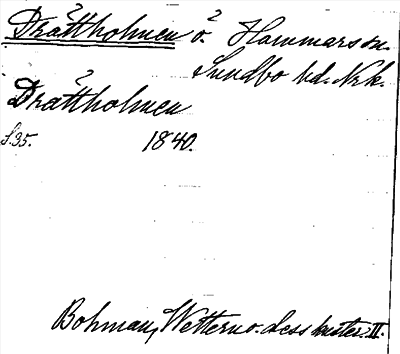 Drättholmen ö. Hammars sn.
Sundbo hd. Nrk.
Drättholmen
S.35. 1840.
Bohman, Wettern o. dess kuster. II.